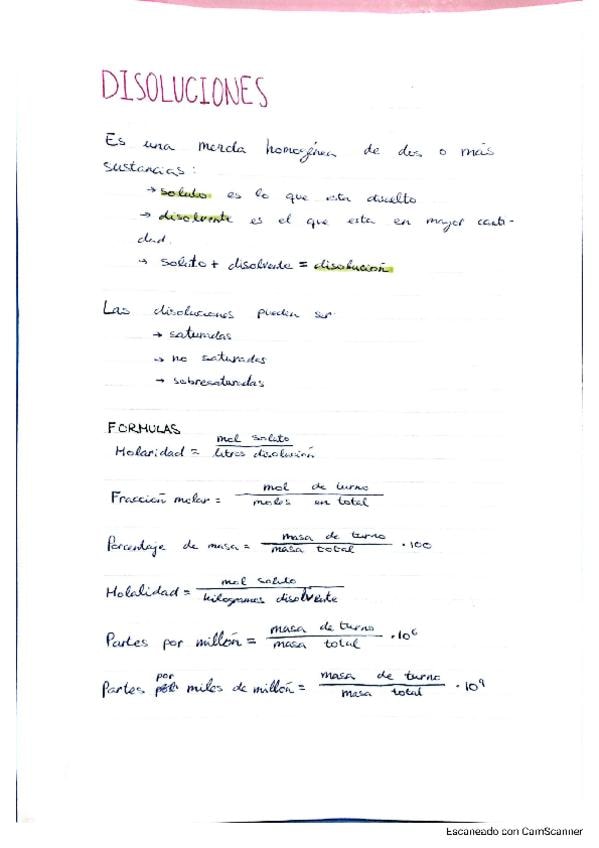 DISOLUCIONES
Es una mezcla homogénea de dos o más
sustancias:
→ soluto es lo que esta disuelto
→ disolvente es el que esta en mayor canti-
dad.
→ soluto + disolvente = disolución
Las disoluciones pueden ser
→ saturadas
→ no saturadas
→ sobresaturadas
FORMULAS
Molaridad = mol soluto / litros disolución
Fracción molar = mol de turno / moles en total
Porcentaje de masa = masa de turno / masa total · 100
Molalidad = mol soluto / kilogramos disolvente
Partes por millón = masa de turno / masa total · 10⁶
Partes por miles de millón = masa de turno / masa total · 10⁹
Escaneado con CamScanner